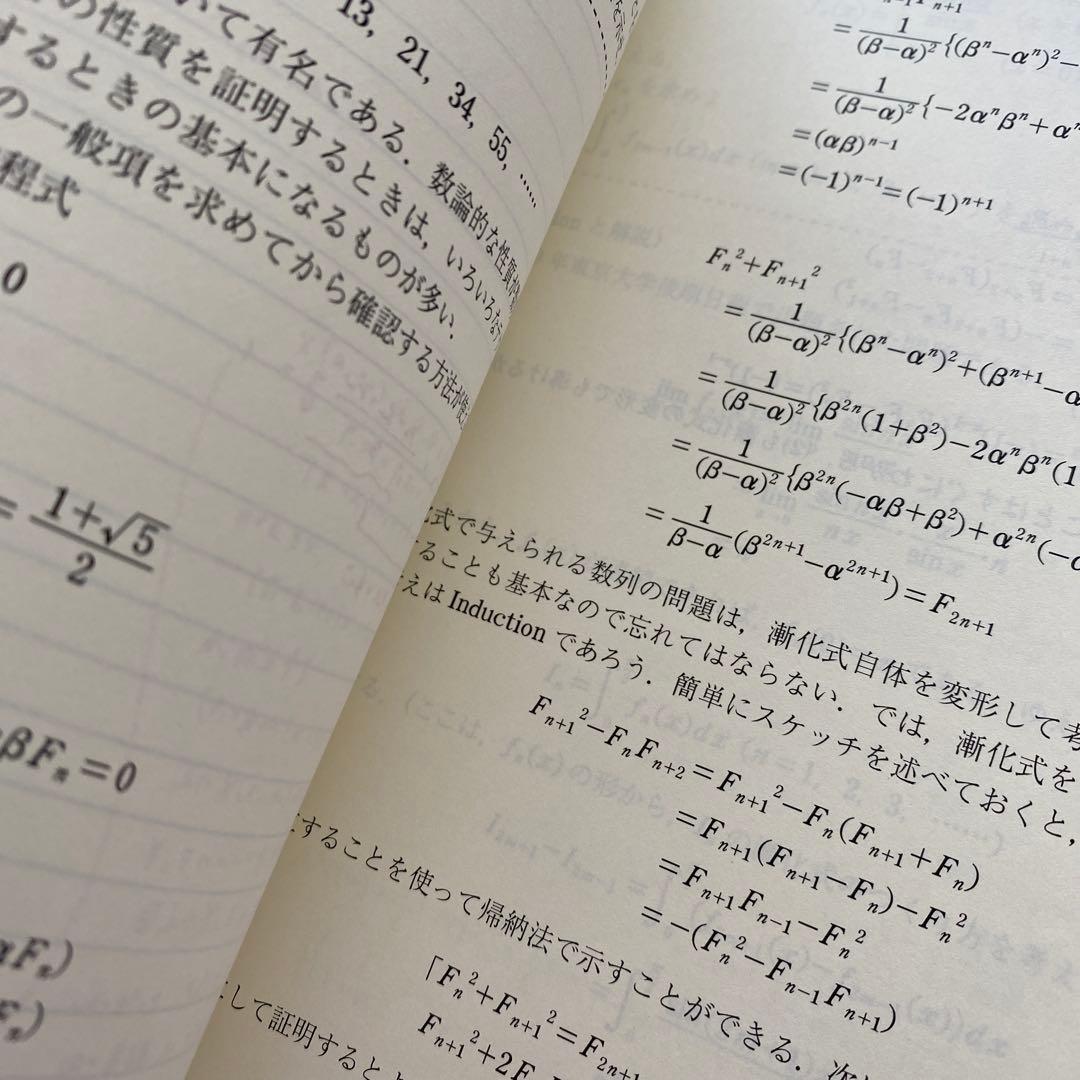 13, 21, 34, 55, ……
いて有名である. 数論的な性質が
の性質を証明するときは, いろいろな
するときの基本になるものが多い.
の一般項を求めてから確認する方法が
程式
0
= \frac{1+√5}{2}
βF_n=0
αF_n)
F_n)
= \frac{1}{(β−α)^2}{(β^n−α^n)^2−
= \frac{1}{(β−α)^2}{−2α^nβ^n+α^n
=(αβ)^{n−1}
=(−1)^{n−1}=(−1)^{n+1}
F_n^2+F_{n+1}^2
= \frac{1}{(β−α)^2}{(β^n−α^n)^2+(β^{n+1}−α
= \frac{1}{(β−α)^2}{β^{2n}(1+β^2)−2α^nβ^n(1
= \frac{1}{(β−α)^2}{β^{2n}(−αβ+β^2)+α^{2n}(−α
= \frac{1}{β−α}(β^{2n+1}−α^{2n+1})=F_{2n+1}
化式で与えられる数列の問題は, 漸化式自体を変形して考
ることも基本なので忘れてはならない. では, 漸化式を
えは Induction であろう. 簡単にスケッチを述べておくと,
F_{n+1}^2−F_nF_{n+2}=F_{n+1}^2−F_n(F_{n+1}+F_n)
=F_{n+1}(F_{n+1}−F_n)−F_n^2
=F_{n+1}F_{n−1}−F_n^2
=−(F_n^2−F_{n−1}F_{n+1})
することを使って帰納法で示すことができる. 次
「F_n^2+F_{n+1}^2=F_{2n+1}
F_{n+1}^2+2F
して証明すると